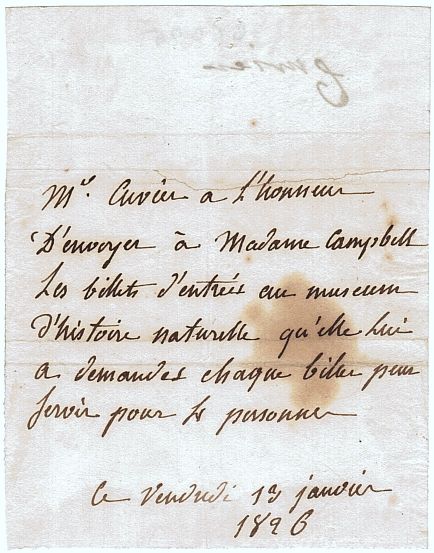 Mr. Cuvier a L'honneur
D'envoyer à Madame Campbell
Les billets d'entrées au museum
d'histoire naturelle qu'elle lui
a demandés chaque billet peut
servir pour 4 personnes
ce Vendredi 13 janvier
1826